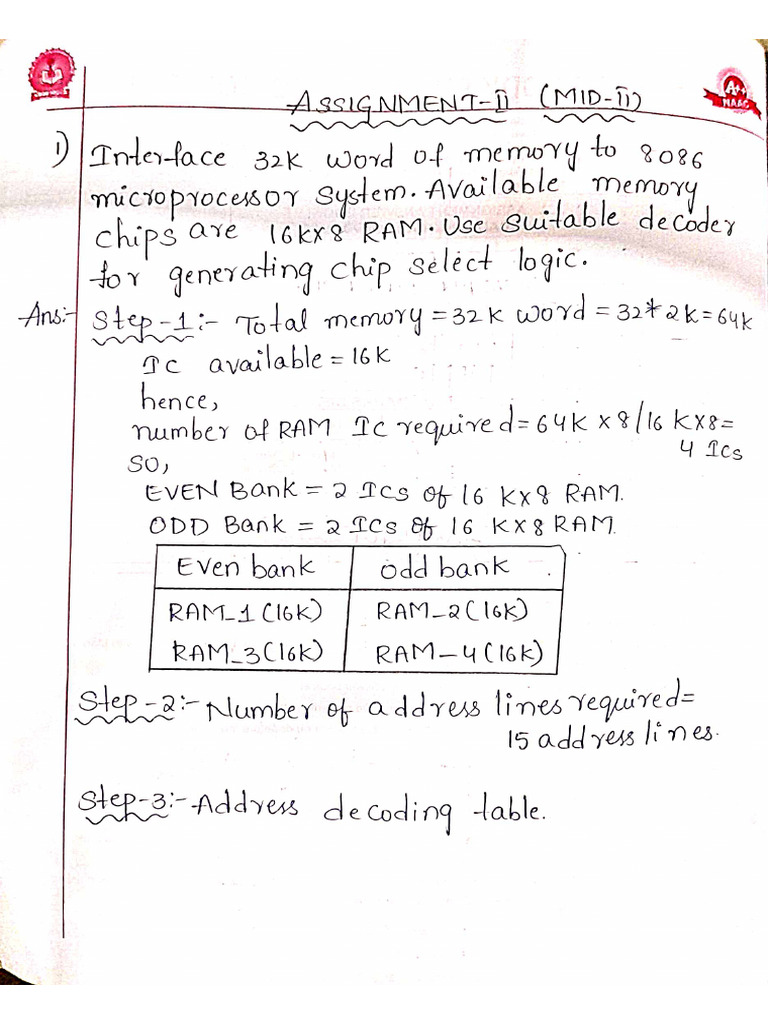 ASSIGNMENT-II (MID-II)
A++
NAAC
1) Interface 32K word of memory to 8086
microprocessor system. Available memory
chips are 16K×8 RAM. Use suitable decoder
for generating chip select logic.
Ans:- Step-1:- Total memory = 32K word = 32*2K=64K
IC available = 16K
hence,
number of RAM IC required = 64K×8/16K×8=
4 ICs
SO,
EVEN Bank = 2 ICs of 16 K×8 RAM.
ODD Bank = 2 ICs of 16 K×8 RAM.
Even bank odd bank .
RAM_1(16K) RAM_2(16K)
RAM_3(16K) RAM_4(16K)
Step-2:- Number of address lines required=
15 address lines.
Step-3:- Address decoding table.